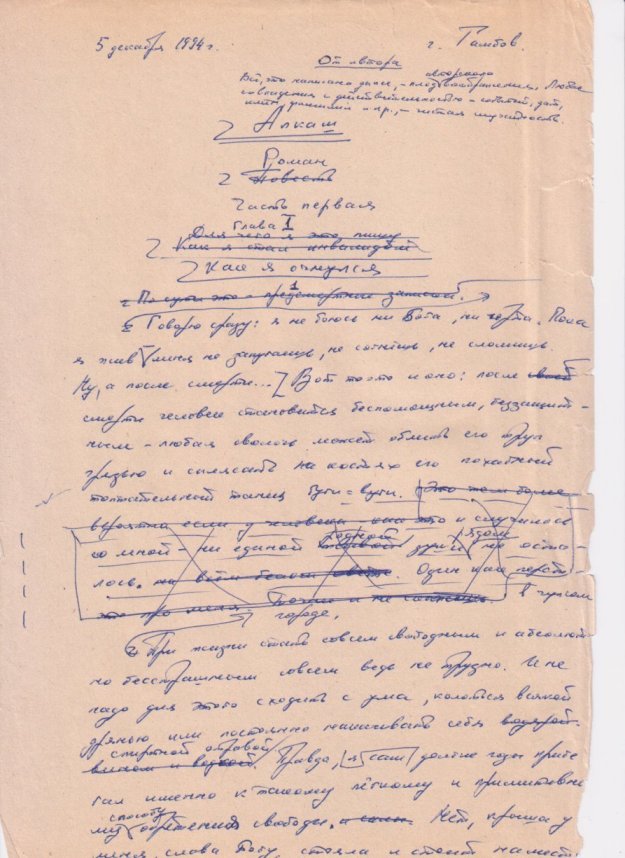 5 декабря 1994 г. г. Тамбов.
От автора
Всё, что написано далее, – плод авторского воображения. Любые
совпадения с действительностью – событий, дат,
имён, фамилий и пр., – чистая случайность.
Алкаш
Роман
Повесть
Часть первая
Глава I
Для чего я это пишу
Как я стал инвалидом
Как я очнулся
1
По сути это – предсмертные записки.
Говорю сразу: я не боюсь ни Бога, ни чёрта. Пока
я жив меня не запугаешь, не согнёшь, не сломишь.
Ну, а после смерти... Вот то-то и оно: после
смерти человек становится беспомощным, беззащит-
ным – любая сволочь может облить его труп
грязью и сплясать на костях его похабный
топтательный танец буги-вуги. Это тем более
вероятно если у человека – оно это и случилось
со мной – ни единой родной души рядом не оста-
лось. на всём белом свете. Один как
это про меня. в чужом
городе.
При жизни стать совсем свободным и абсолют-
но бесстрашным совсем ведь не трудно. И не
надо для этого сходить с ума, колоться всякой
дрянью или постоянно накачивать себя водярой.
спиртной отравой
вином и водкой. Правда, я сам долгие годы прибе
гал именно к такому лёгкому и примитивно
му способу обретения свободы. Нет, крыша у
меня, слава Богу, стояла и стоит на месте